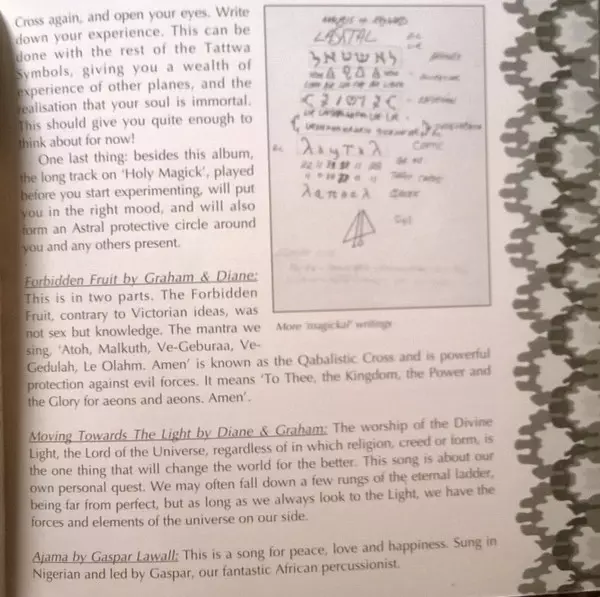 Cross again, and open your eyes. Write
down your experience. This can be
done with the rest of the Tattwa
Symbols, giving you a wealth of
experience of other planes, and the
realisation that your soul is immortal.
This should give you quite enough to
think about for now!
One last thing: besides this album,
the long track on 'Holy Magick', played
before you start experimenting, will put
you in the right mood, and will also
form an Astral protective circle around
you and any others present.
LASHTAL
More 'magickal' writings
Forbidden Fruit by Graham & Diane:
This is in two parts. The Forbidden
Fruit, contrary to Victorian ideas, was
not sex but knowledge. The mantra we
sing, 'Atoh, Malkuth, Ve-Geburaa, Ve-
Gedulah, Le Olahm. Amen' is known as the Qabalistic Cross and is powerful
protection against evil forces. It means 'To Thee, the Kingdom, the Power and
the Glory for aeons and aeons. Amen'.
Moving Towards The Light by Diane & Graham: The worship of the Divine
Light, the Lord of the Universe, regardless of in which religion, creed or form, is
the one thing that will change the world for the better. This song is about our
own personal quest. We may often fall down a few rungs of the eternal ladder,
being far from perfect, but as long as we always look to the Light, we have the
forces and elements of the universe on our side.
Ajama by Gaspar Lawall: This is a song for peace, love and happiness. Sung in
Nigerian and led by Gaspar, our fantastic African percussionist.